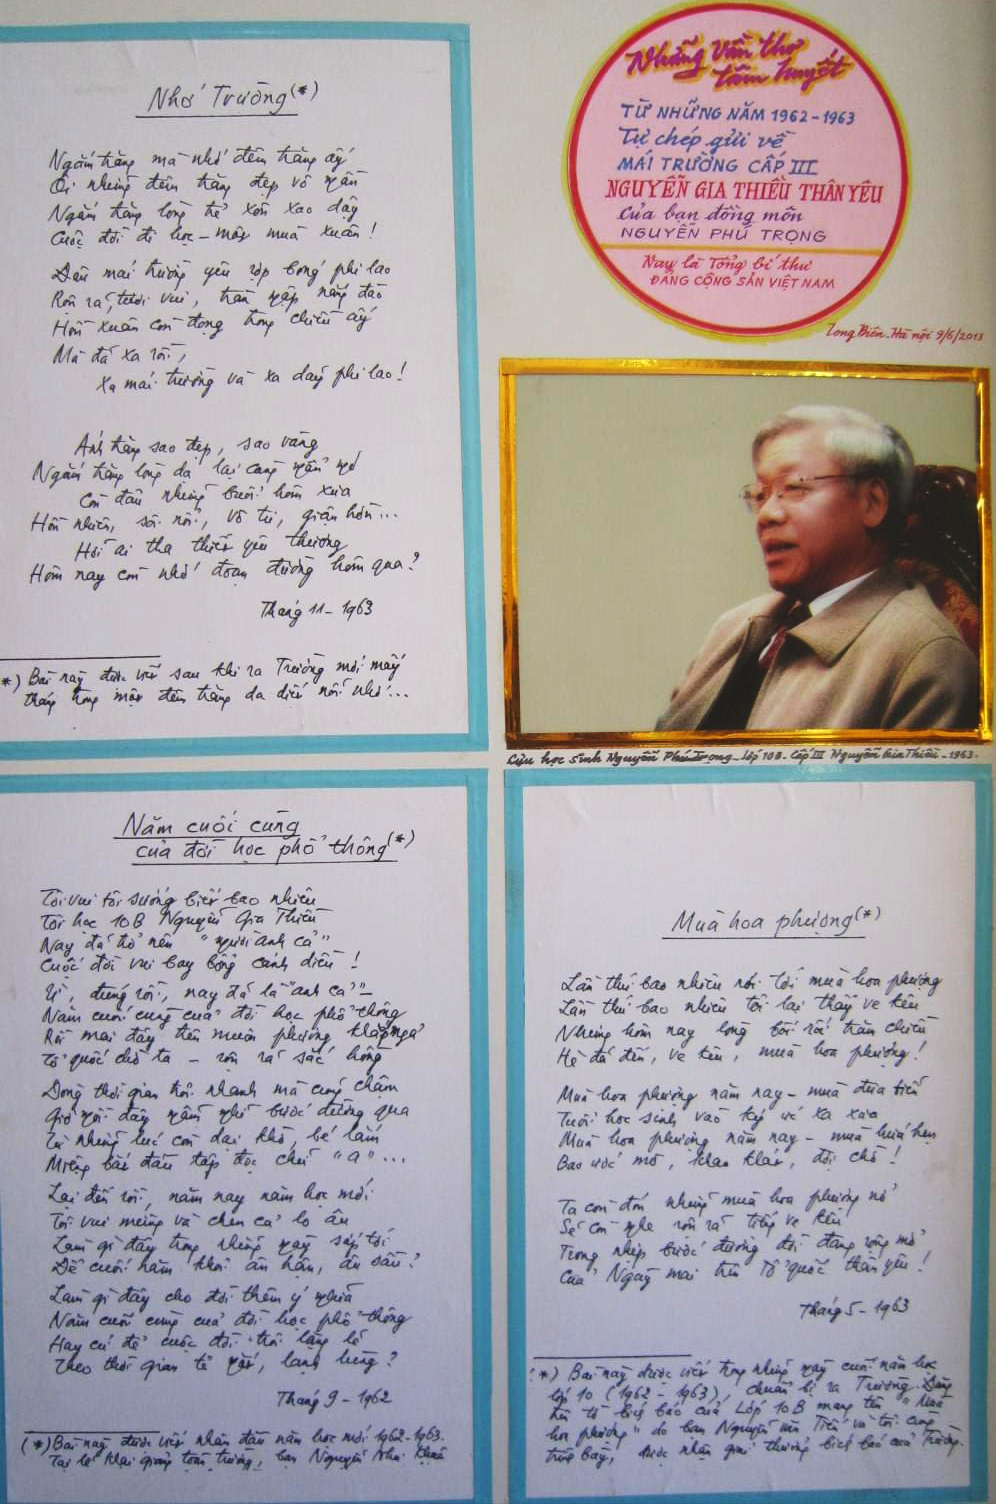 Nhớ Trường (*)
Ngắm trăng mà nhớ đêm trăng ấy
Ôi những đêm trăng đẹp vô ngần
Ngắm trăng lòng thể xôn xao dậy
Cuộc đời đi học - mấy mùa xuân!
Đâu mái trường yêu rợp bóng phi lao
Rộn rã, tươi vui, tràn ngập nắng đào
Hồn xuân còn đọng trong chiều ấy
Mà đã xa rồi,
Xa mái trường và xa dãy phi lao!
Ánh trăng sao đẹp, sao vàng
Ngắm trăng lòng dạ lại càng ngẩn ngơ
Còn đâu những buổi hôm xưa
Hồn nhiên, sôi nổi, vô tư, giận hờn...
Hỏi ai tha thiết yêu thương
Hôm nay còn nhớ đoạn đường hôm qua?
Tháng 11 - 1963
*) Bài này được viết sau khi ra Trường mới mấy
tháng trong một đêm trăng da diết nỗi nhớ...
Những vần thơ
tâm huyết
TỪ NHỮNG NĂM 1962-1963
Tự chép gửi về
MÁI TRƯỜNG CẤP III
NGUYỄN GIA THIỀU THÂN YÊU
Của bạn đồng môn
NGUYỄN PHÚ TRỌNG
Nay là Tổng bí thư
ĐẢNG CỘNG SẢN VIỆT NAM
Long Biên. Hà nội 9/6/2013
Cựu học sinh Nguyễn Phú Trọng - Lớp 10B. Cấp III Nguyễn Gia Thiều - 1963.
Năm cuối cùng
của đời học phổ thông (*)
Tôi vui tôi sướng biết bao nhiêu
Tôi học 10B Nguyễn Gia Thiều
Nay đã trở nên "người anh cả"
Cuộc đời vui bay bổng cánh diều!
Ừ, đúng rồi, nay đã là "anh cả" -
Năm cuối cùng của đời học phổ thông
Rồi mai đây trên muôn phương khắp ngả
Tổ quốc chờ ta - rộn rã sắc hồng
Dòng thời gian trôi nhanh mà cũng chậm
Giờ ngồi đây ngẫm nghĩ bước đường qua
Từ những lúc còn dại khờ, bé lắm
Miệng bắt đầu tập đọc chữ "a"...
Lại đến rồi, năm nay năm học mới
Tôi vui mừng và chen cả lo âu
Làm gì đây trong những ngày sắp tới
Để cuối năm khỏi ân hận, âu sầu?
Làm gì đây cho đời thêm ý nghĩa
Năm cuối cùng của đời học phổ thông
Hay cứ để cuộc đời trôi lặng lẽ
Theo thời gian tẻ ngắt, lạnh lùng?
Tháng 9 - 1962
(*) Bài này được viết nhân đầu năm học mới 1962-1963.
Tại lễ khai giảng toàn trường, bạn Nguyễn Như
Mùa hoa phượng (*)
Lần thứ bao nhiêu rồi tới mùa hoa phượng
Lần thứ bao nhiêu tôi lại thấy ve kêu
Nhưng hôm nay lòng bối rối trăm chiều
Hè đã đến, ve kêu, mùa hoa phượng!
Mùa hoa phượng năm nay - mùa đưa tiễn
Tuổi học sinh vào ký ức xa xưa
Mùa hoa phượng năm nay - mùa hứa hẹn
Bao ước mơ, khao khát, đợi chờ!
Ta còn đón những mùa hoa phượng nở
Sẽ còn nghe rộn rã tiếng ve kêu
Trong nhịp bước đường đời đang rộng mở
Của Ngày mai trên Tổ quốc thân yêu!
Tháng 5 - 1963
(*) Bài này được viết trong những ngày cuối năm học
lớp 10 (1962 - 1963), chuẩn bị ra Trường. Dùng
tên tờ bích báo của Lớp 10B mang tên "Mùa
hoa phượng" do bạn Nguyễn Tiến và tôi cùng
trưng bày, được nhận giải thưởng bích báo của Trường.